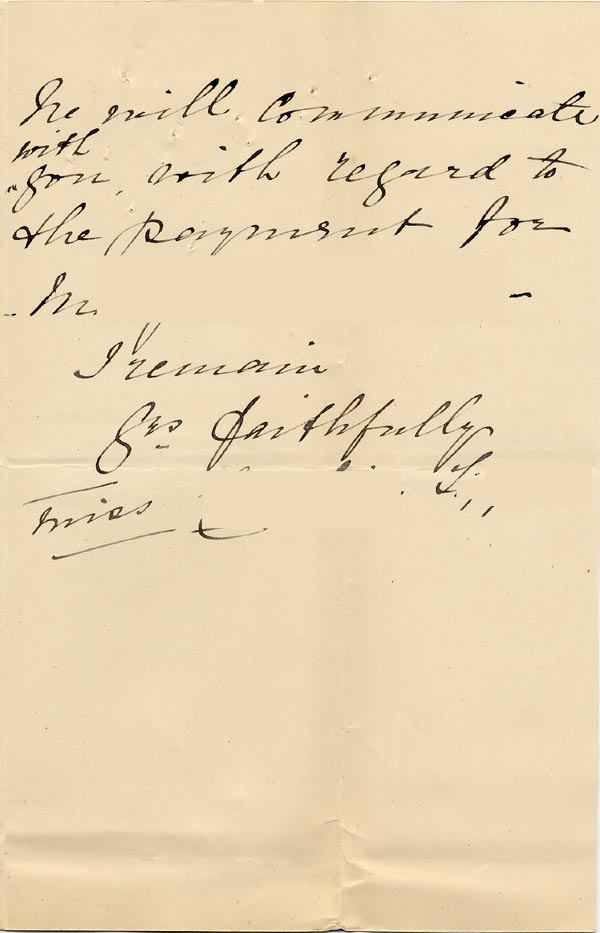 he will communicate
with
you, with regard to
the payment for
M.
I remain
Yrs faithfully
Miss